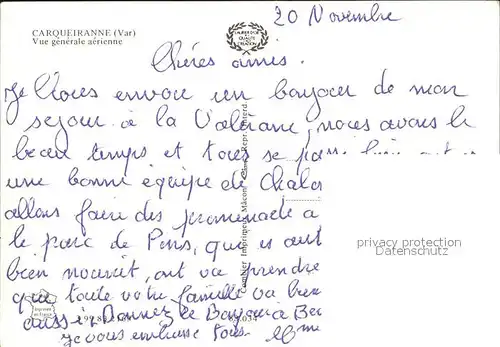 CARQUEIRANNE (Var)
Vue générale aérienne
20 Novembre
LAURIER D'OR
DE LA QUALITÉ
DE CRÉATION
Chères amis.
Je Vous envoie un bonjour de mon
sejour à la Valérane, nous avons le
beau temps et tous se passe bien
une bonne équipe de Chalos
allons faire des promenade a
le parc de Pins, que es
bien nourit, ont va prendre
que toute votre famille va bien
aussi, Donnez le Bonjour a
Je vous embrasse tous.
Combier Imprimeur Mâcon
privacy protection
Datenschutz